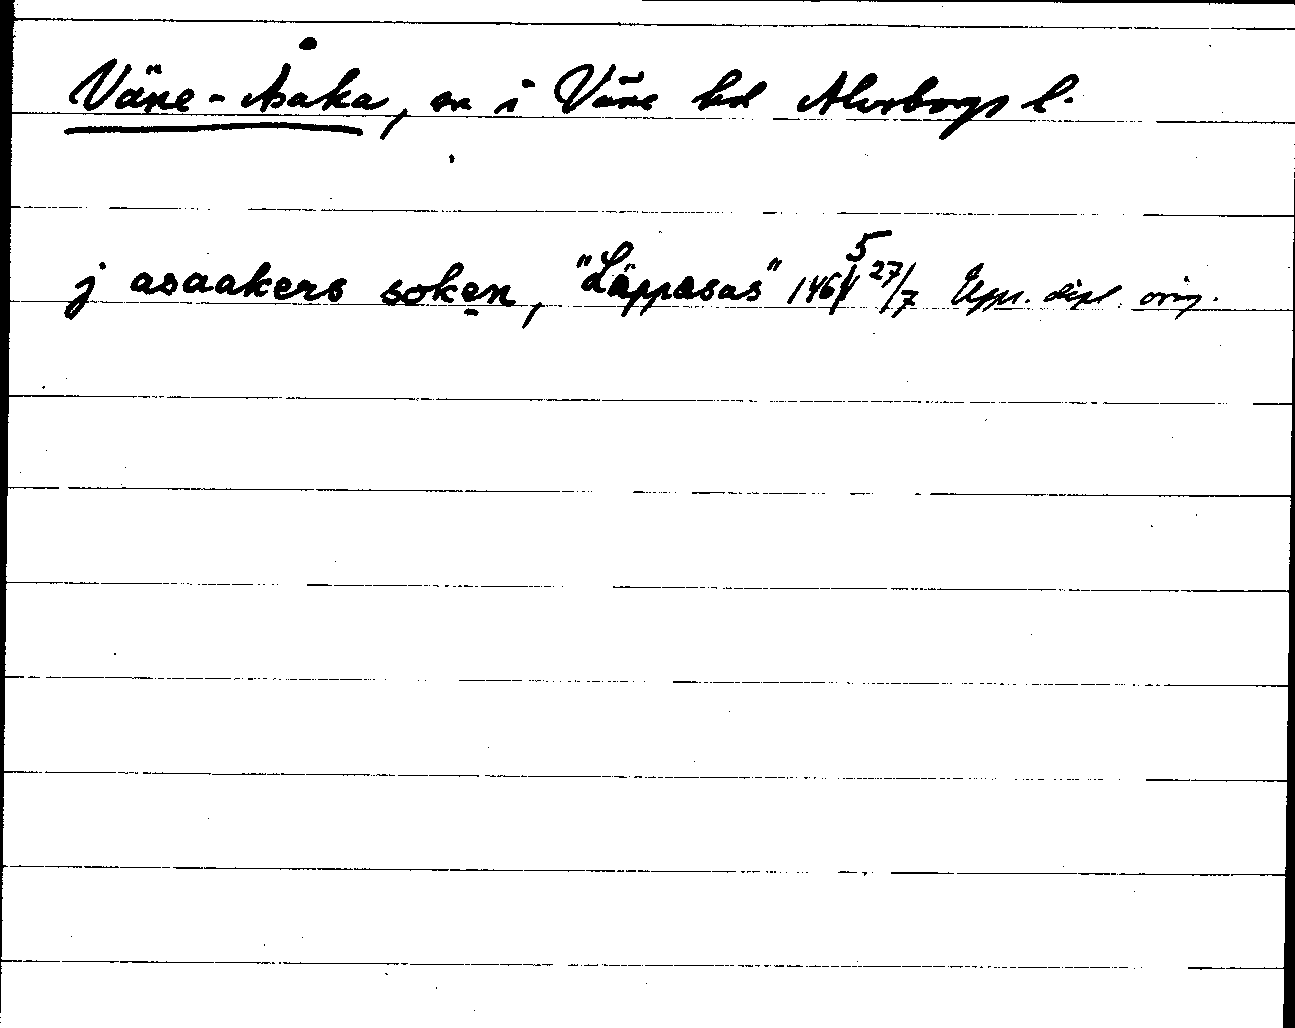 Väne-Åsaka, sn i Väne hd Älvsborgs l.
j asaakers soken, "Läppasas" 1465 27/7 Uppr. dipl. orig.